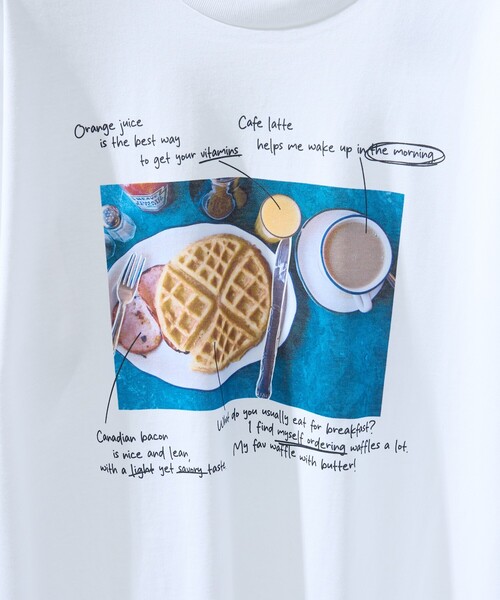 Orange juice
is the best way
to get your vitamins
Cafe latte
helps me wake up in the morning
What do you usually eat for breakfast?
I find myself ordering waffles a lot.
My fav waffle with butter!
Canadian bacon
is nice and lean,
with a light yet savory taste